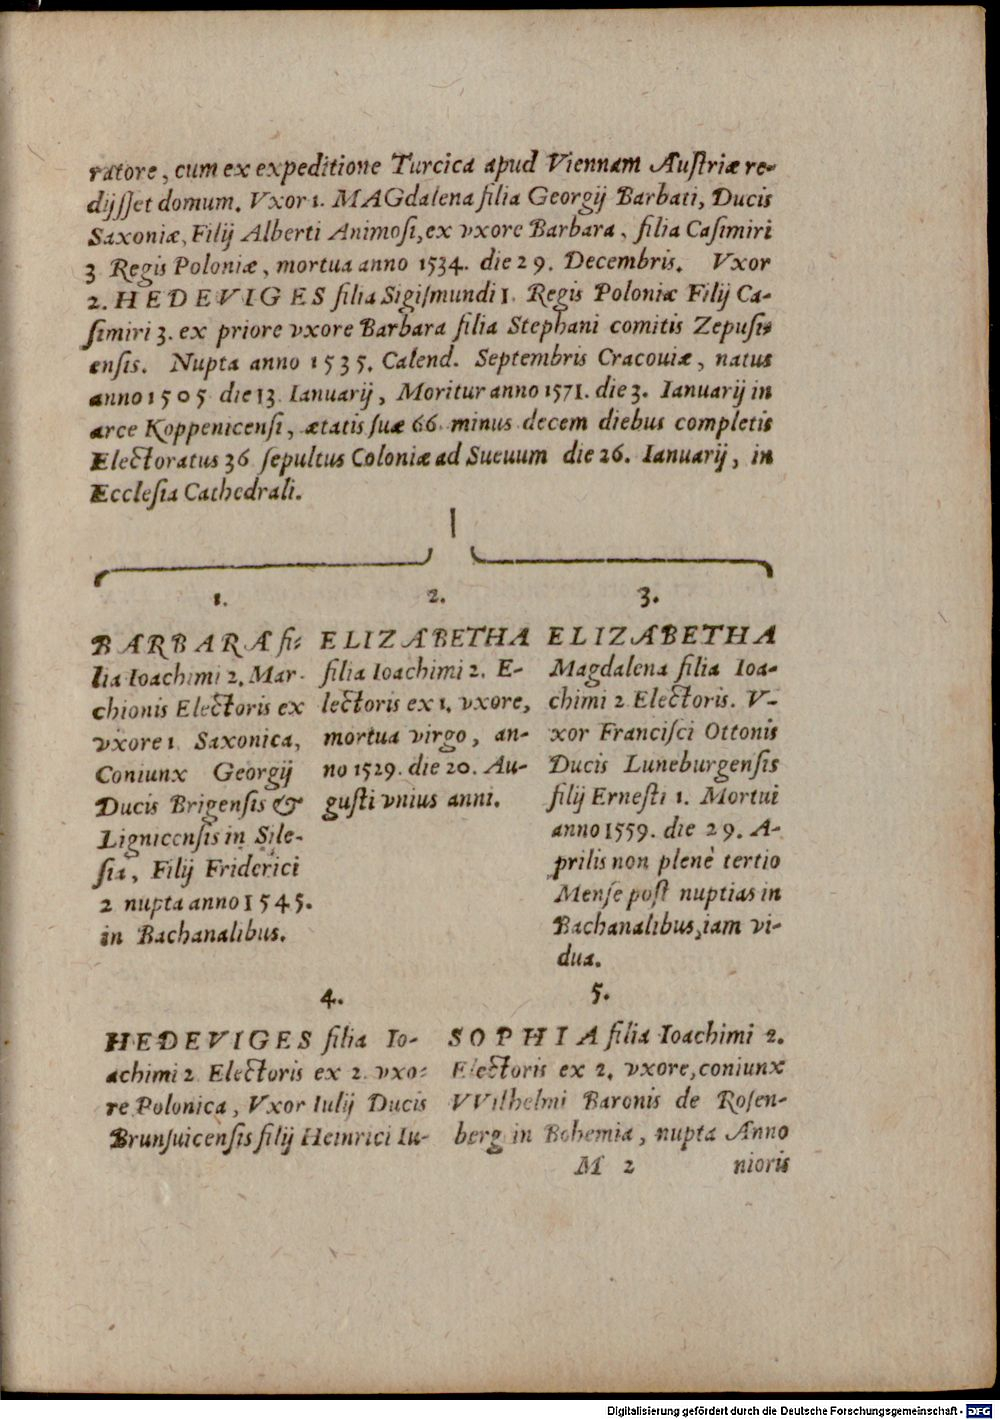 ratore, cum ex expeditione Turcica apud Viennam Auſtriæ re-
dijſſet domum. Vxor 1. MAGdalena filia Georgij Barbati, Ducis
Saxoniæ, Filij Alberti Animoſi, ex vxore Barbara, filia Caſimiri
3 Regis Poloniæ, mortua anno 1534. die 29. Decembris. Vxor
2. HEDEVIGES filia Sigiſmundi 1. Regis Poloniæ Filij Ca-
ſimiri 3. ex priore vxore Barbara filia Stephani comitis Zepuſi-
enſis. Nupta anno 1535. Calend. Septembris Cracouiæ, natus
anno 1505 die 13 Ianuarij, Moritur anno 1571. die 3. Ianuarij in
arce Koppenicenſi, ætatis ſuæ 66 minus decem diebus completis
Electoratus 36 ſepultus Coloniæ ad Sueuum die 26. Ianuarij, in
Eccleſia Cathedrali.
1.
BARBARA fi-
lia Ioachimi 2. Mar-
chionis Electoris ex
vxore 1 Saxonica,
Coniunx Georgij
Ducis Brigenſis &
Lignicenſis in Sile-
ſia, Filij Friderici
2 nupta anno 1545.
in Bachanalibus.
2.
ELIZABETHA
filia Ioachimi 2. E-
lectoris ex 1. vxore,
mortua virgo, an-
no 1529. die 20. Au-
guſti vnius anni.
3.
ELIZABETHA
Magdalena filia Ioa-
chimi 2 Electoris. V-
xor Franciſci Ottonis
Ducis Luneburgenſis
filij Erneſti 1. Mortui
anno 1559. die 29. A-
prilis non plenè tertio
Menſe poſt nuptias in
Bachanalibus, iam vi-
dua.
4.
HEDEVIGES filia Io-
achimi 2 Electoris ex 2. vxo-
re Polonica, Vxor Iulij Ducis
Brunſuicenſis filij Heinrici Iu-
5.
SOPHIA filia Ioachimi 2.
Electoris ex 2. vxore, coniunx
VVilhelmi Baronis de Roſen-
berg in Bohemia, nupta Anno
M 2 nioris
Digitalisierung gefördert durch die Deutsche Forschungsgemeinschaft - DFG